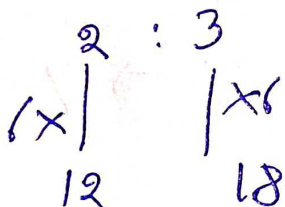 2 : 3
6x | | x6
12 18